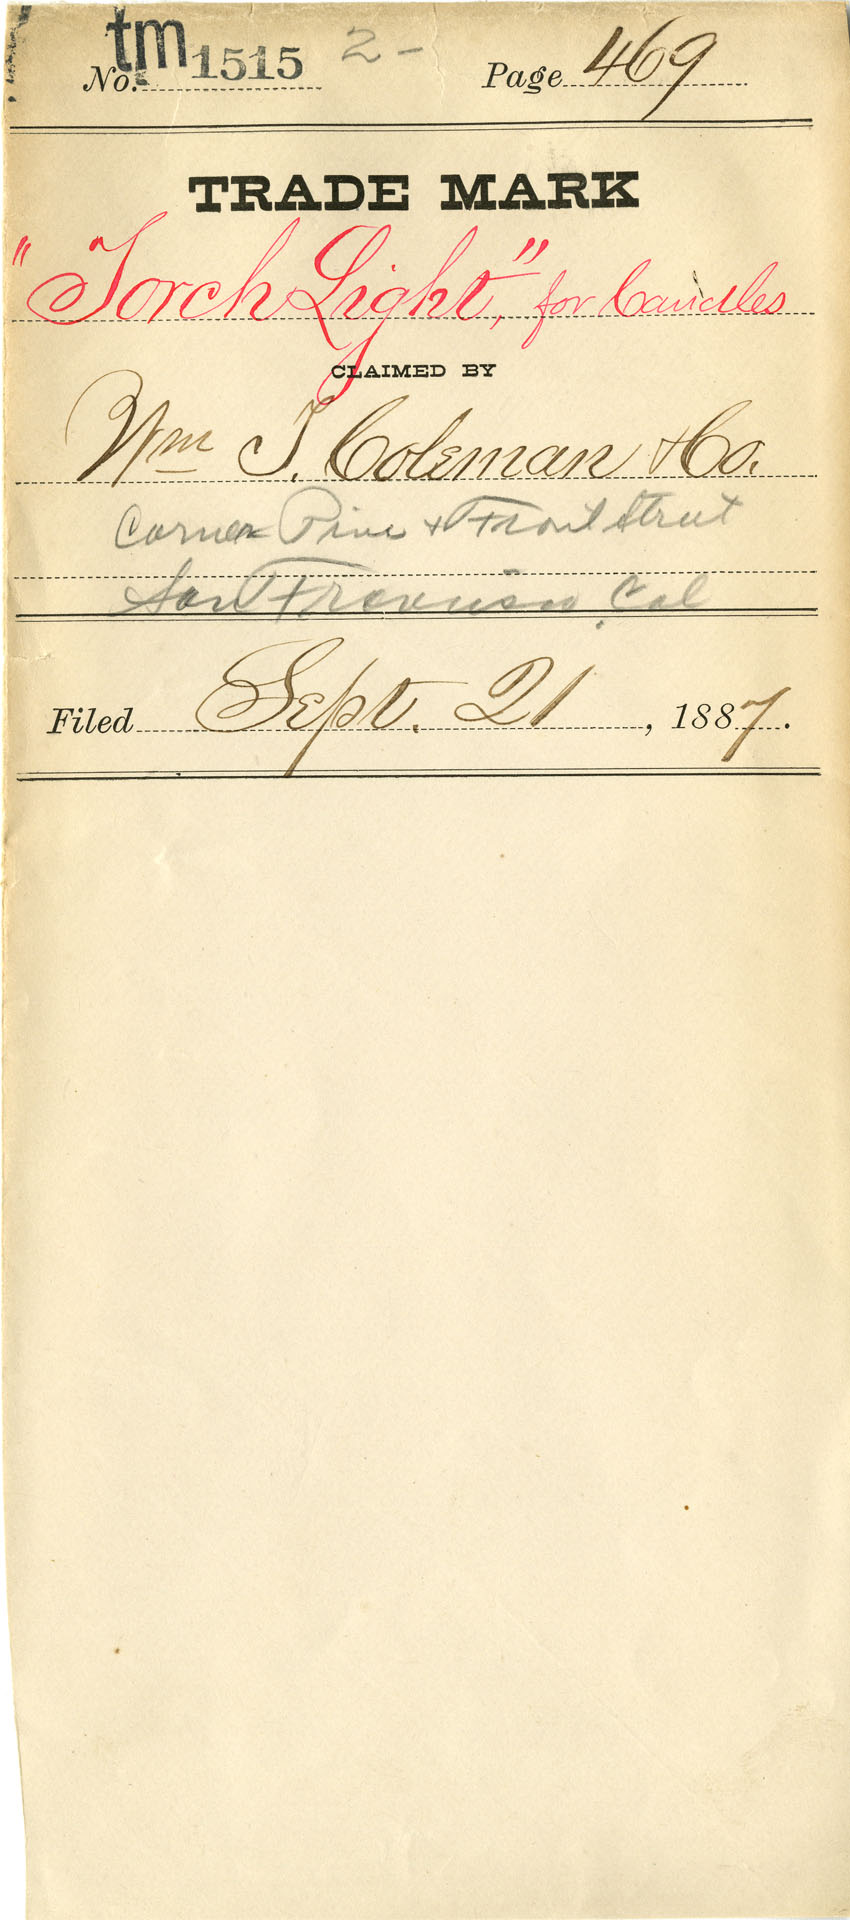 No. tm 1515 2- Page 469
TRADE MARK
"Torch Light", for Candles
CLAIMED BY
Wm T. Coleman & Co.
Corner Pine & Front Street
San Francisco, Cal
Filed Sept. 21, 1887.